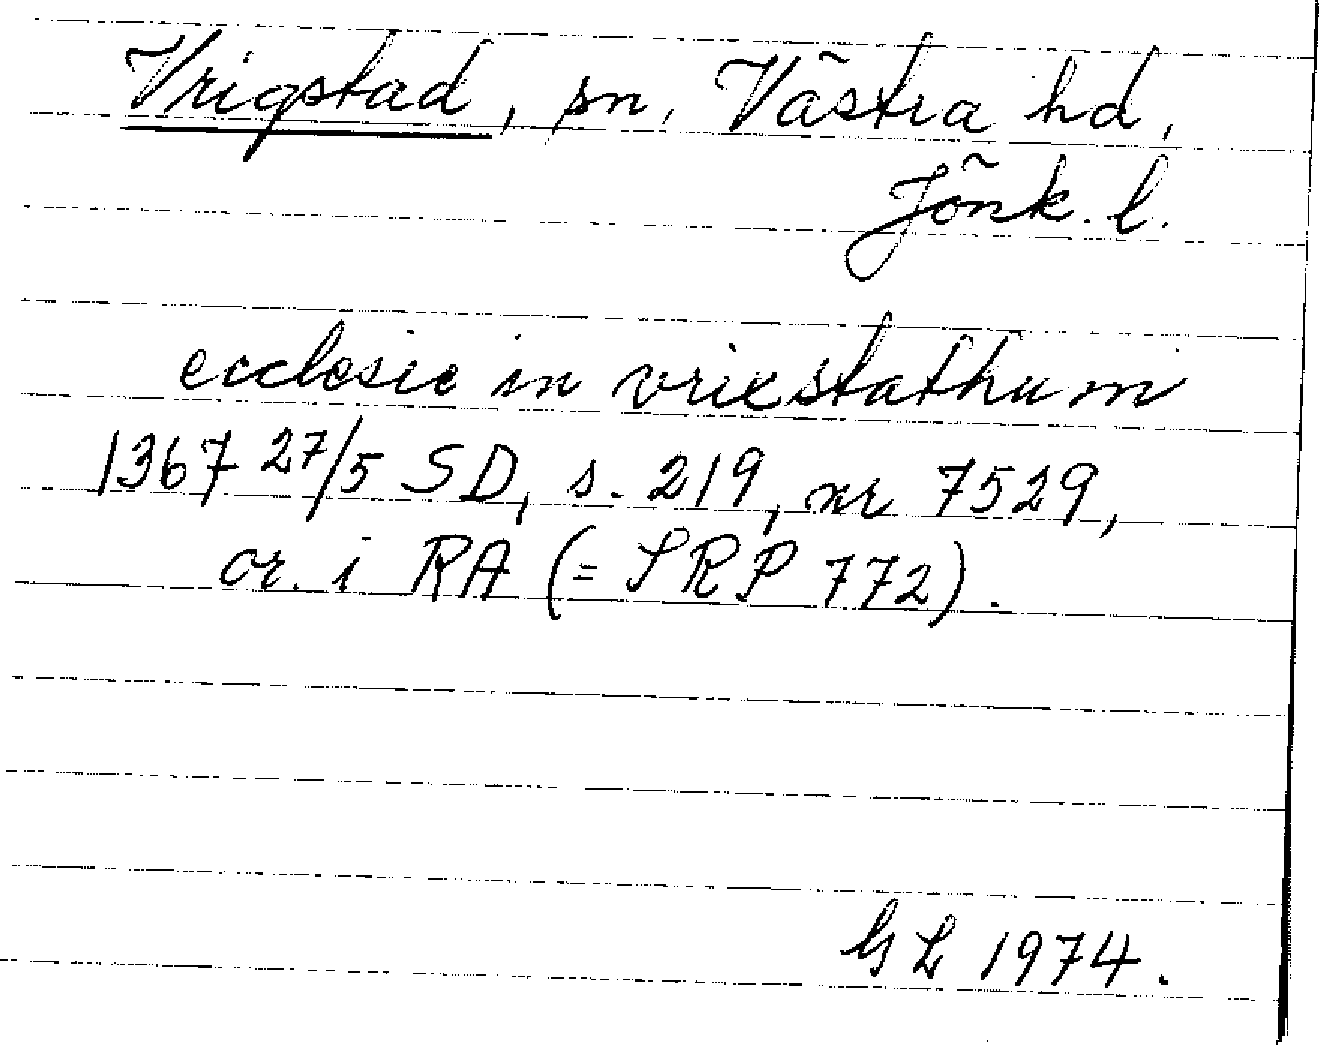 Vrigstad, sn, Västra hd,
Jönk. l.
ecclesie in vriestathum
1367 27/5 SD, s. 219, nr 7529,
or. i RA (= SRP 772).
GL 1974.